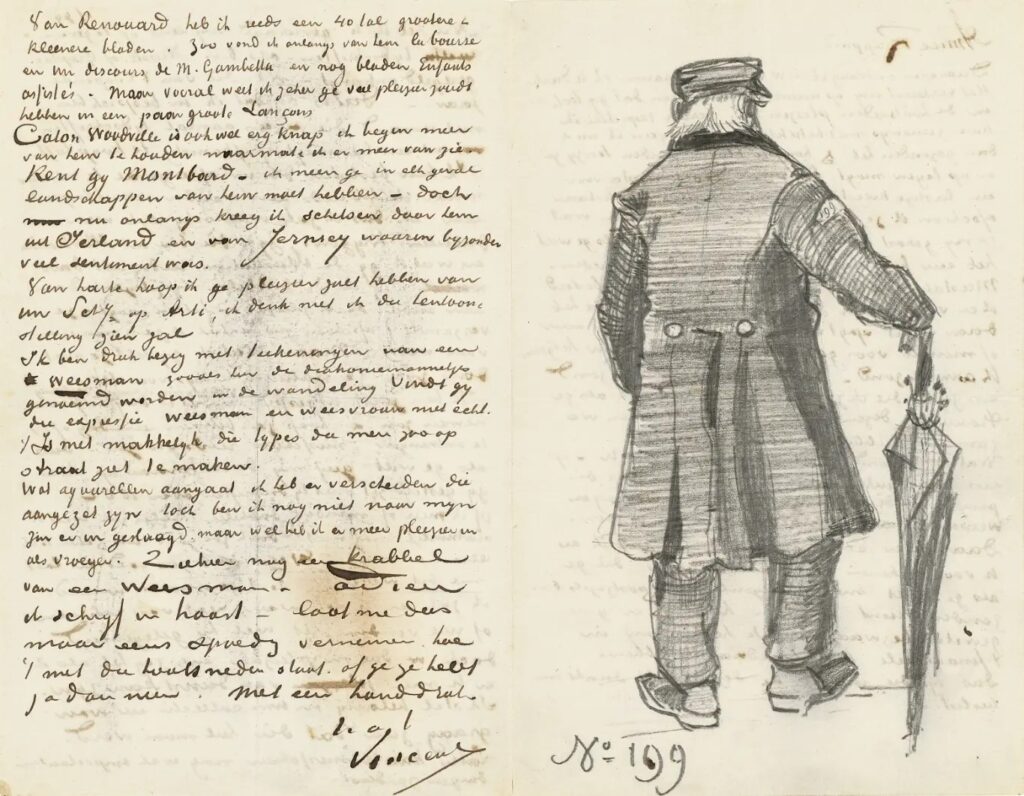 Van Renouard heb ik reeds een 40 tal grootere &
kleinere bladen. Zoo vond ik onlangs van hem la bourse
en un discours de M. Gambetta en nog bladen Enfants
assistés. Maar vooral weet ik zeker ge veel pleizier zoudt
hebben in een paar groote Lançons
Caton Woodville is ook wel erg knap ik begin meer
van hem te houden naarmate ik er meer van zie
Kent gy Montbard – ik meen ge in elk geval
landschappen van hem moet hebben – doch
nu onlangs kreeg ik schetsen door hem
uit Ierland en van Jersey waarin byzonder
veel sentiment was.
Van harte hoop ik ge pleizier zult hebben van
uw Schy op Arti, ik denk niet ik die tentoon-
stelling zien zal
Ik ben druk bezig met teekeningen van een
weesman zooals hier de diakoniemannetjes
genoemd worden in de wandeling Vindt gy
die expressie weesman en weesvrouw niet echt.
't Is niet makkelyk die types die men zoo op
straat ziet te maken.
Wat aquarellen aangaat ik heb er verscheiden die
aangezet zyn toch ben ik nog niet naar myn
zin er in geslaagd. maar wel heb ik er meer pleizier in
als vroeger. Ziehier nog een krabbel
van een Weesman – adieu
ik schryf in haast – laat me dus
maar eens spoedig vernemen hoe
't met die houtsneden staat. of ge ze hebt
ja dan neen. Met een handdruk
Vincent
No 199